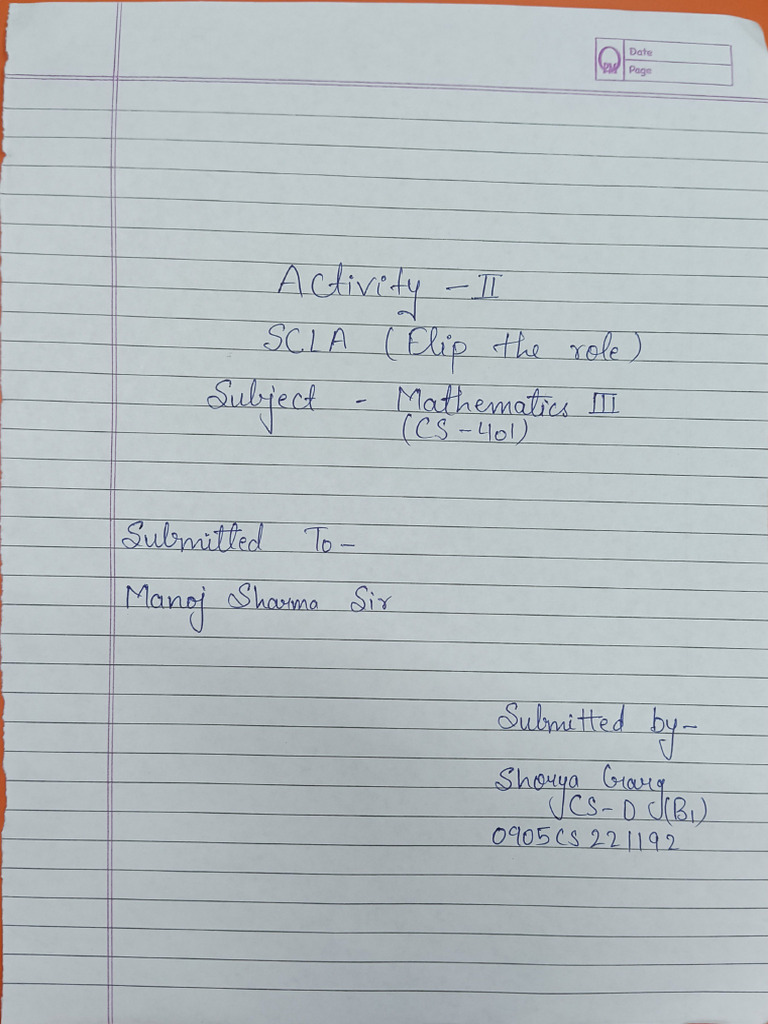 Date
Page
Activity - II
SCLA (Flip the role)
Subject - Mathematics III
(CS-401)
Submitted To-
Manoj Sharma Sir
Submitted by-
Shorya Garg
CS-D (B1)
0905CS221192